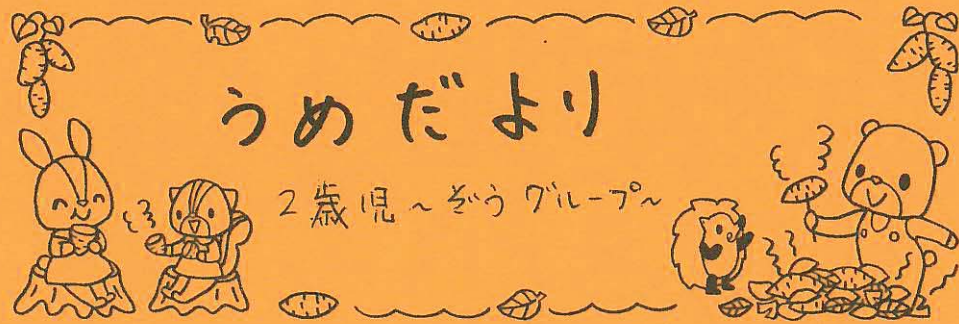 うめだより
2歳児~ぞうグループ~